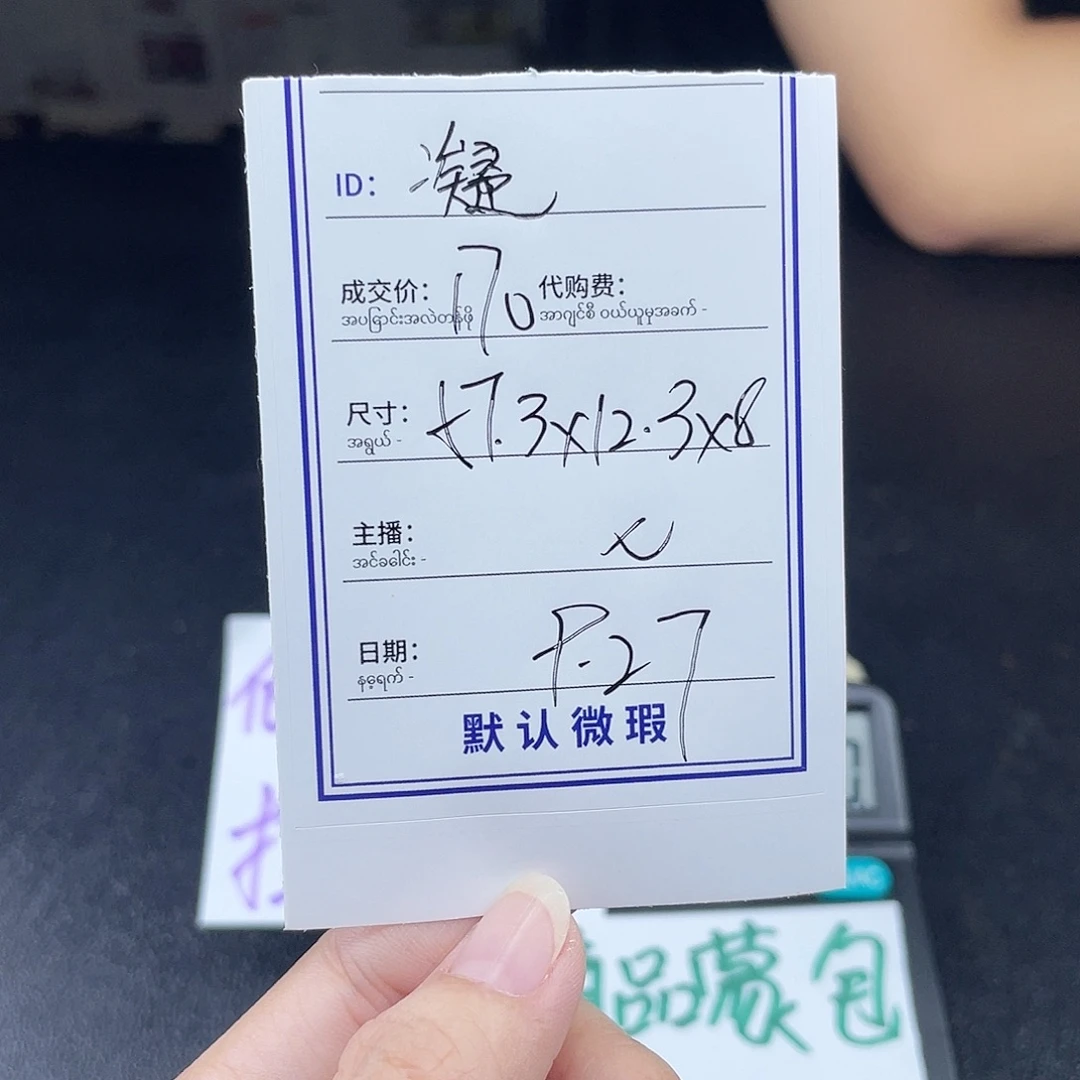 ID: 凝
成交价: 170 代购费:
အပြောင်းအလဲတန်ဖို အာဂျင်စီ ဝယ်ယူမှုအခက် -
尺寸: 57.3x12.3x8
အရွယ် -
主播: x
အင်ခခေါင်း -
日期: 7.27
နေ့ရက် -
默认微瑕
品蒙包